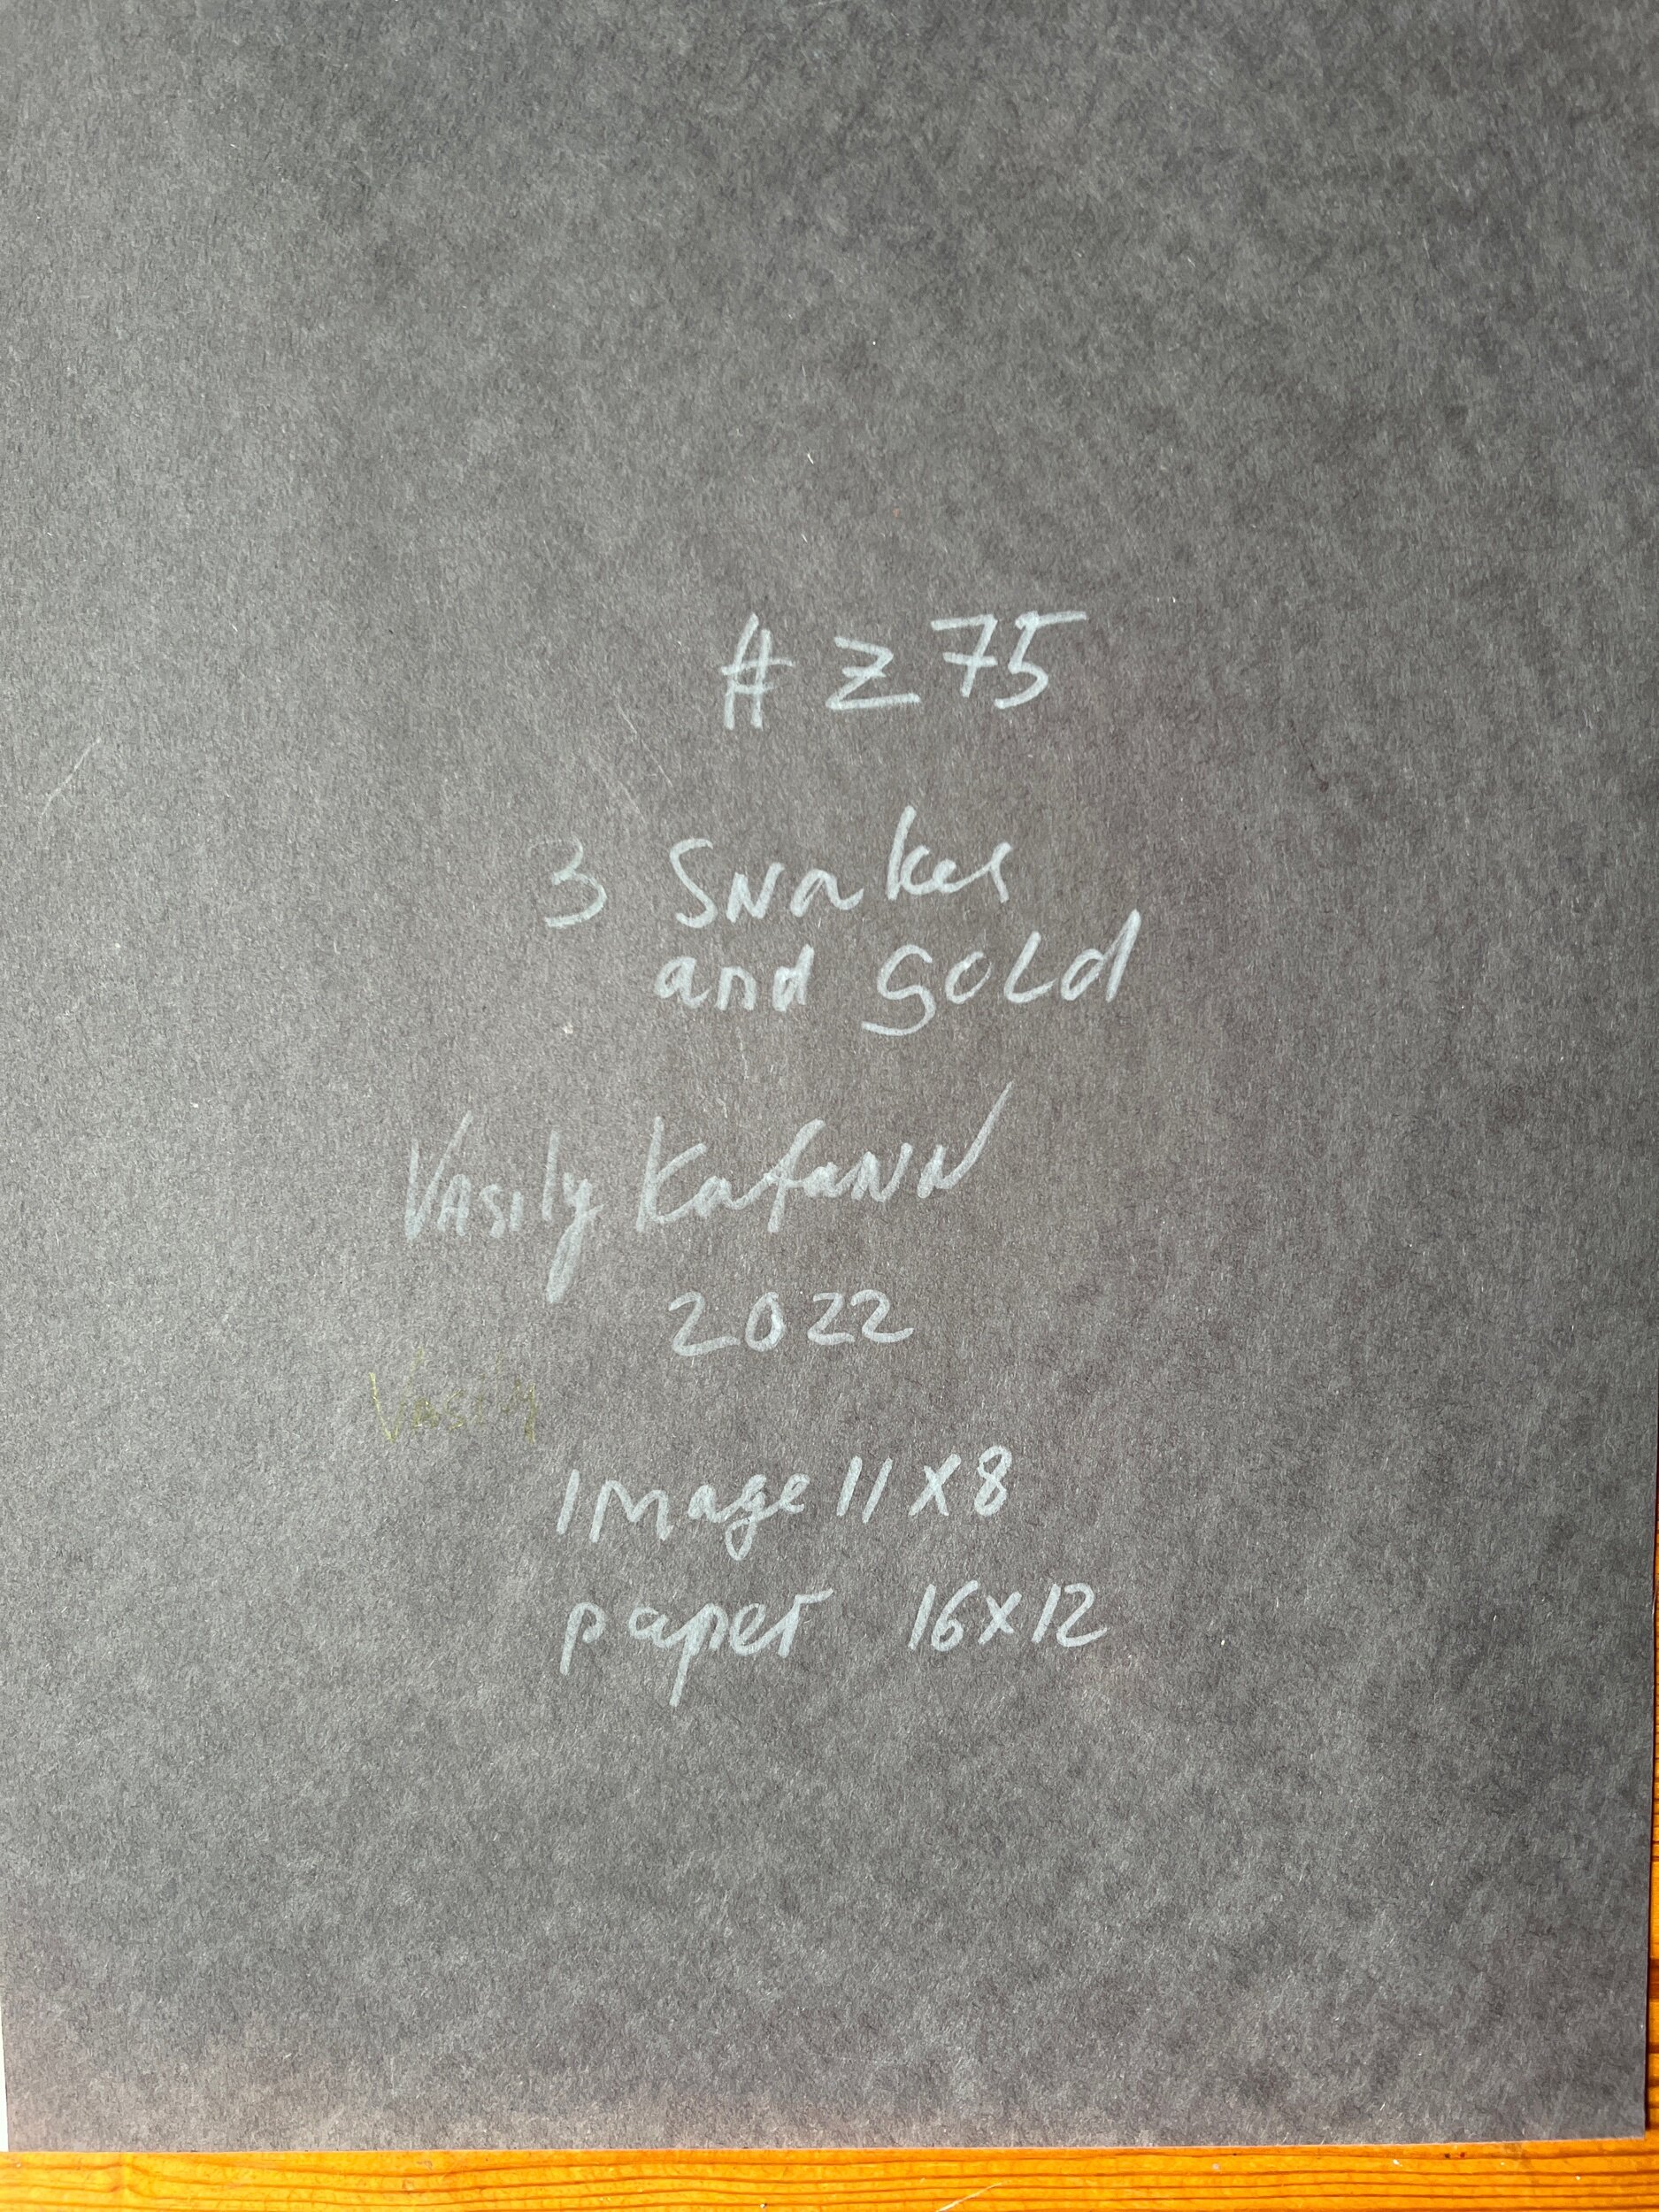 # Z75
3 Snakes
and gold
Vasily Kafann
2022
Vasily
Image 11 x 8
paper 16x12